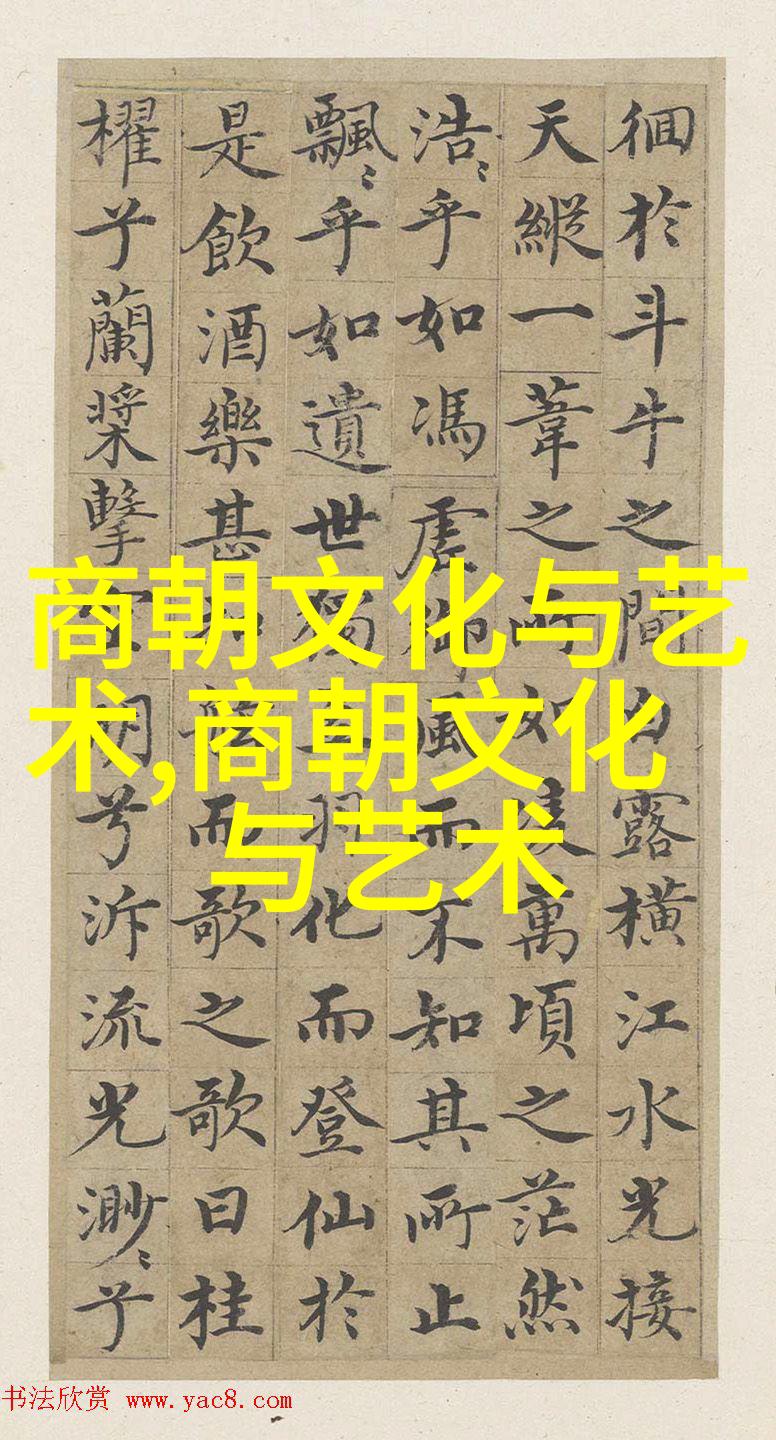 徊於斗牛之間白露橫江水光接
天縱一葦之所如凌萬頃之茫然
浩〻乎如馮虛御風而不知其所止
飄〻乎如遺世獨立羽化而登仙於
是飲酒樂甚扣舷而歌之歌曰桂
櫂兮蘭槳擊空明兮泝流光渺〻兮
商朝文化与艺
术,商朝文化
与艺术
书法欣赏 www.yac8.com